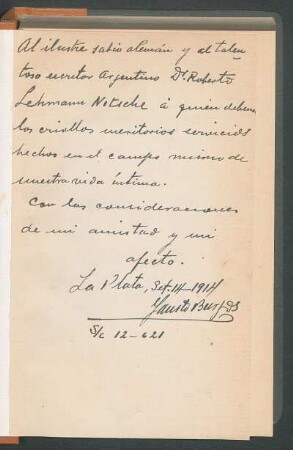 Al ilustre sabio alemán y al talen-
toso escritor Argentino Dr. Roberto
Lehmann Nitsche á quién debemos
los criollos meritorios servicios
hechos en el campo mismo de
nuestra vida íntima.
Con las consideraciones
de mi amistad y mi
afecto.
La Plata, Set. 14-1914
Fausto Burgos
S/c 12-621